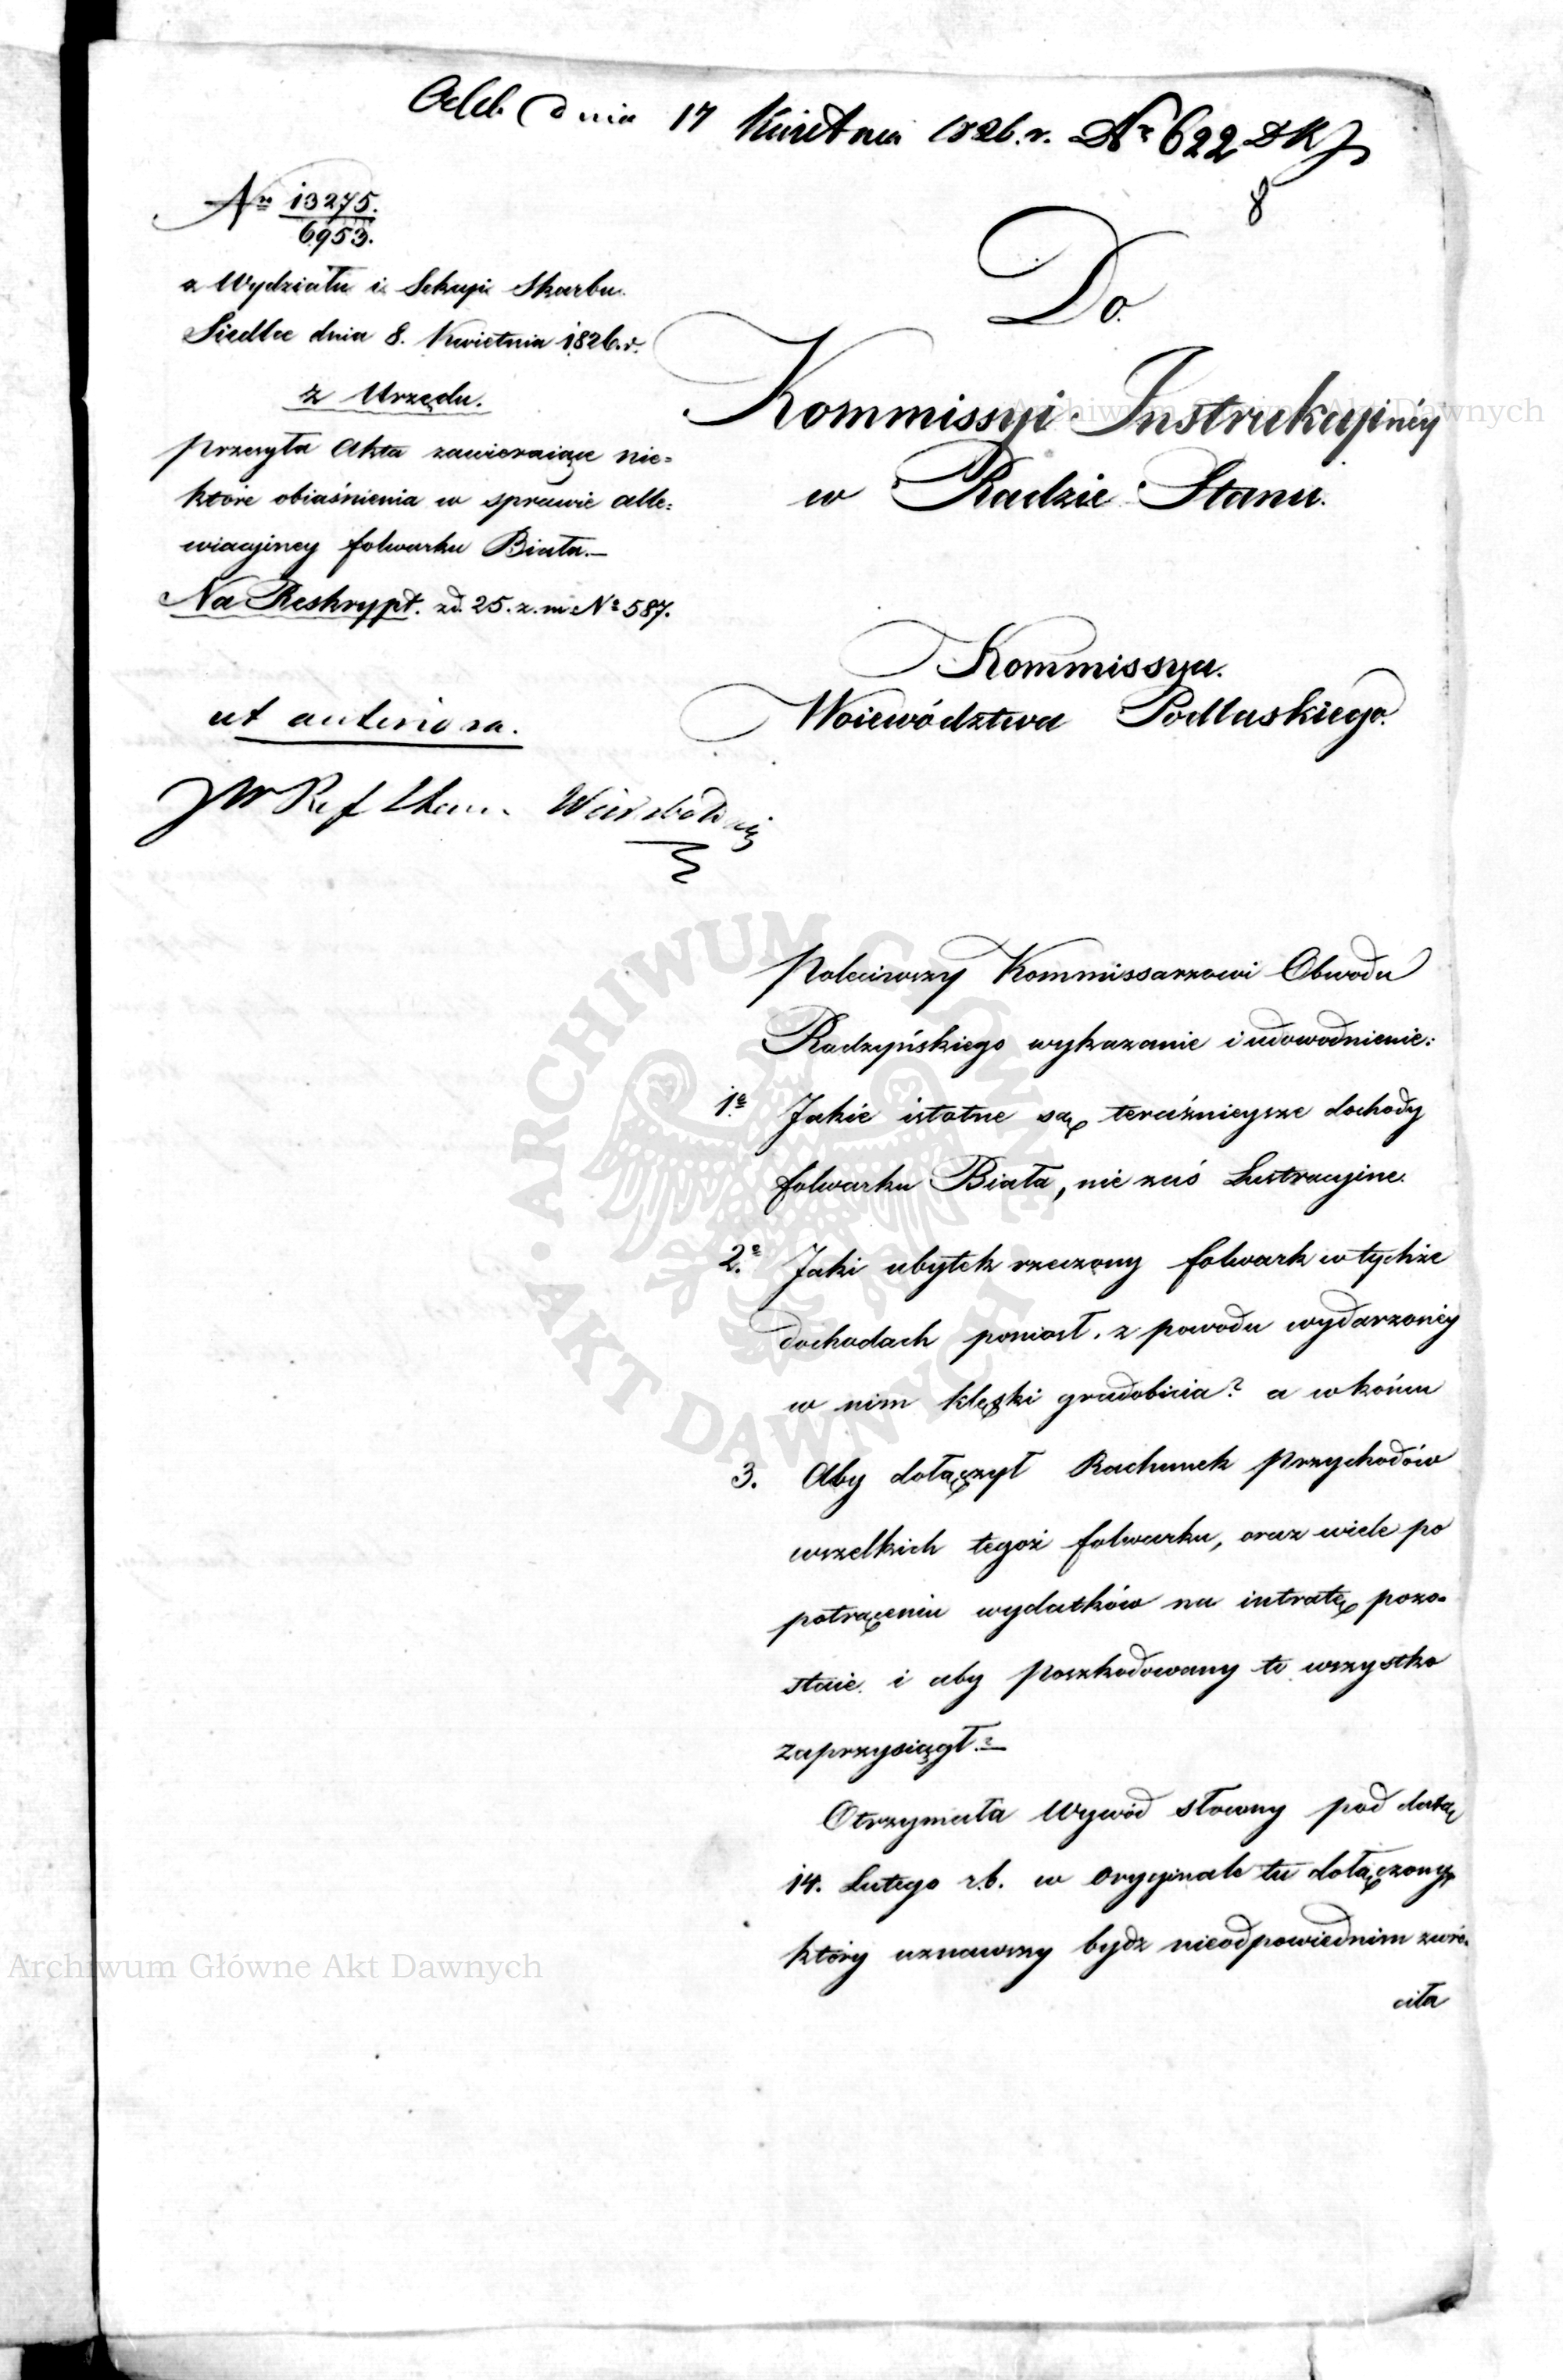 Odeb. dnia 17 Kwietnia 1826. r. Nr 622 DKJ
8
Nro 13275.
6953.
z Wydziału i Sekcyi Skarbu.
Siedlce dnia 8. Kwietnia 1826. r.
z Urzędu.
Przesyła Akta zawieraiące nie=
które obiaśnienia w sprawie alle=
wiacyiney folwarku Biała.—
Na Reskrypt. z d. 25. z. m. No 587.
ut anteriora.
JW Ref. Stanu
Do
Kommissyi Instrukcyinéy
w Radzie Stanu.
Kommissya
Woiewództwa Podlaskiego.
Poleciwszy Kommissarzowi Obwodu
Radzyńskiego wykazanie i udowodnienie:
1e Jakie istotne są teraźnieysze dochody
folwarku Biała, nie zaś Lustracyine.
2.e Jaki ubytek rzeczony folwark w tychże
dochodach poniosł, z powodu wydarzonéy
w nim klęski gradobicia? a w końcu
3. Aby dołączył Rachunek Przychodów
wszelkich tegoż folwarku, oraz wiele po
potrąceniu wydatków na intratę pozo=
staie. i aby Poszkodowany to wszystko
zaprzysiągł.—
Otrzymała Wywód słowny pod datą
14. Lutego r. b. w Oryginale tu dołączony,
który uznawszy bydź nieodpowiednim zwró=
ciła
Archiwum Główne Akt Dawnych
ARCHIWUM GŁÓWNE · AKT DAWNYCH ·
Archiwum Główne Akt Dawnych